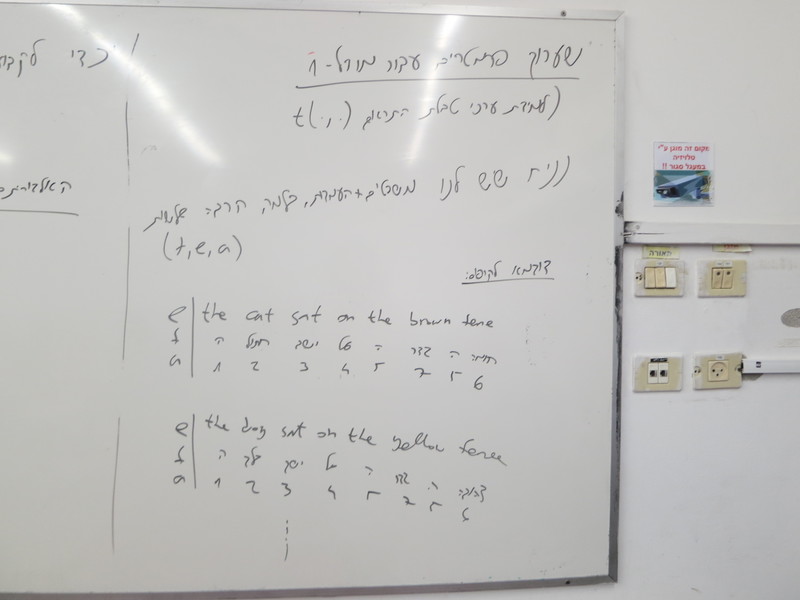 שערוך פרמטרים עבור מודל-1
(למידת ערכי טבלת התרגום t(.,.)
נניח שיש לנו משפטים + העמדות, כלומר, הרבה שלשות
(f, e, a)
דוגמא לקורפוס:
e | the cat sat on the brown fence
f | ה חתול ישב על ה גדר ה חומה
a | 1 2 3 4 5 7 5 6
e | the dog sat on the yellow fence
f | ה כלב ישב על ה גדר ה צהובה
a | 1 2 3 4 5 7 5 6
/ וכדי
מקום זה מוגן ע"י
טלויזיה
במעגל סגור !!
תאורה